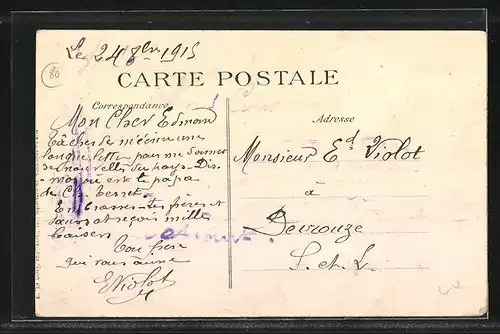 Le 24 8bre 1915
80
CARTE POSTALE
Correspondance
Adresse
Mon Cher Edmond
tâches de m'écrire une
longue lettre pour me donner
des nouvelles du pays. Dis-
moi où est le papa
de Cl. Terret.
Embrasse tes frères et
sœurs et reçois mille
baisers
Ton frère
qui vous aime
EViolot
Monsieur Ed Violot
à
Devrouze
S. et L.